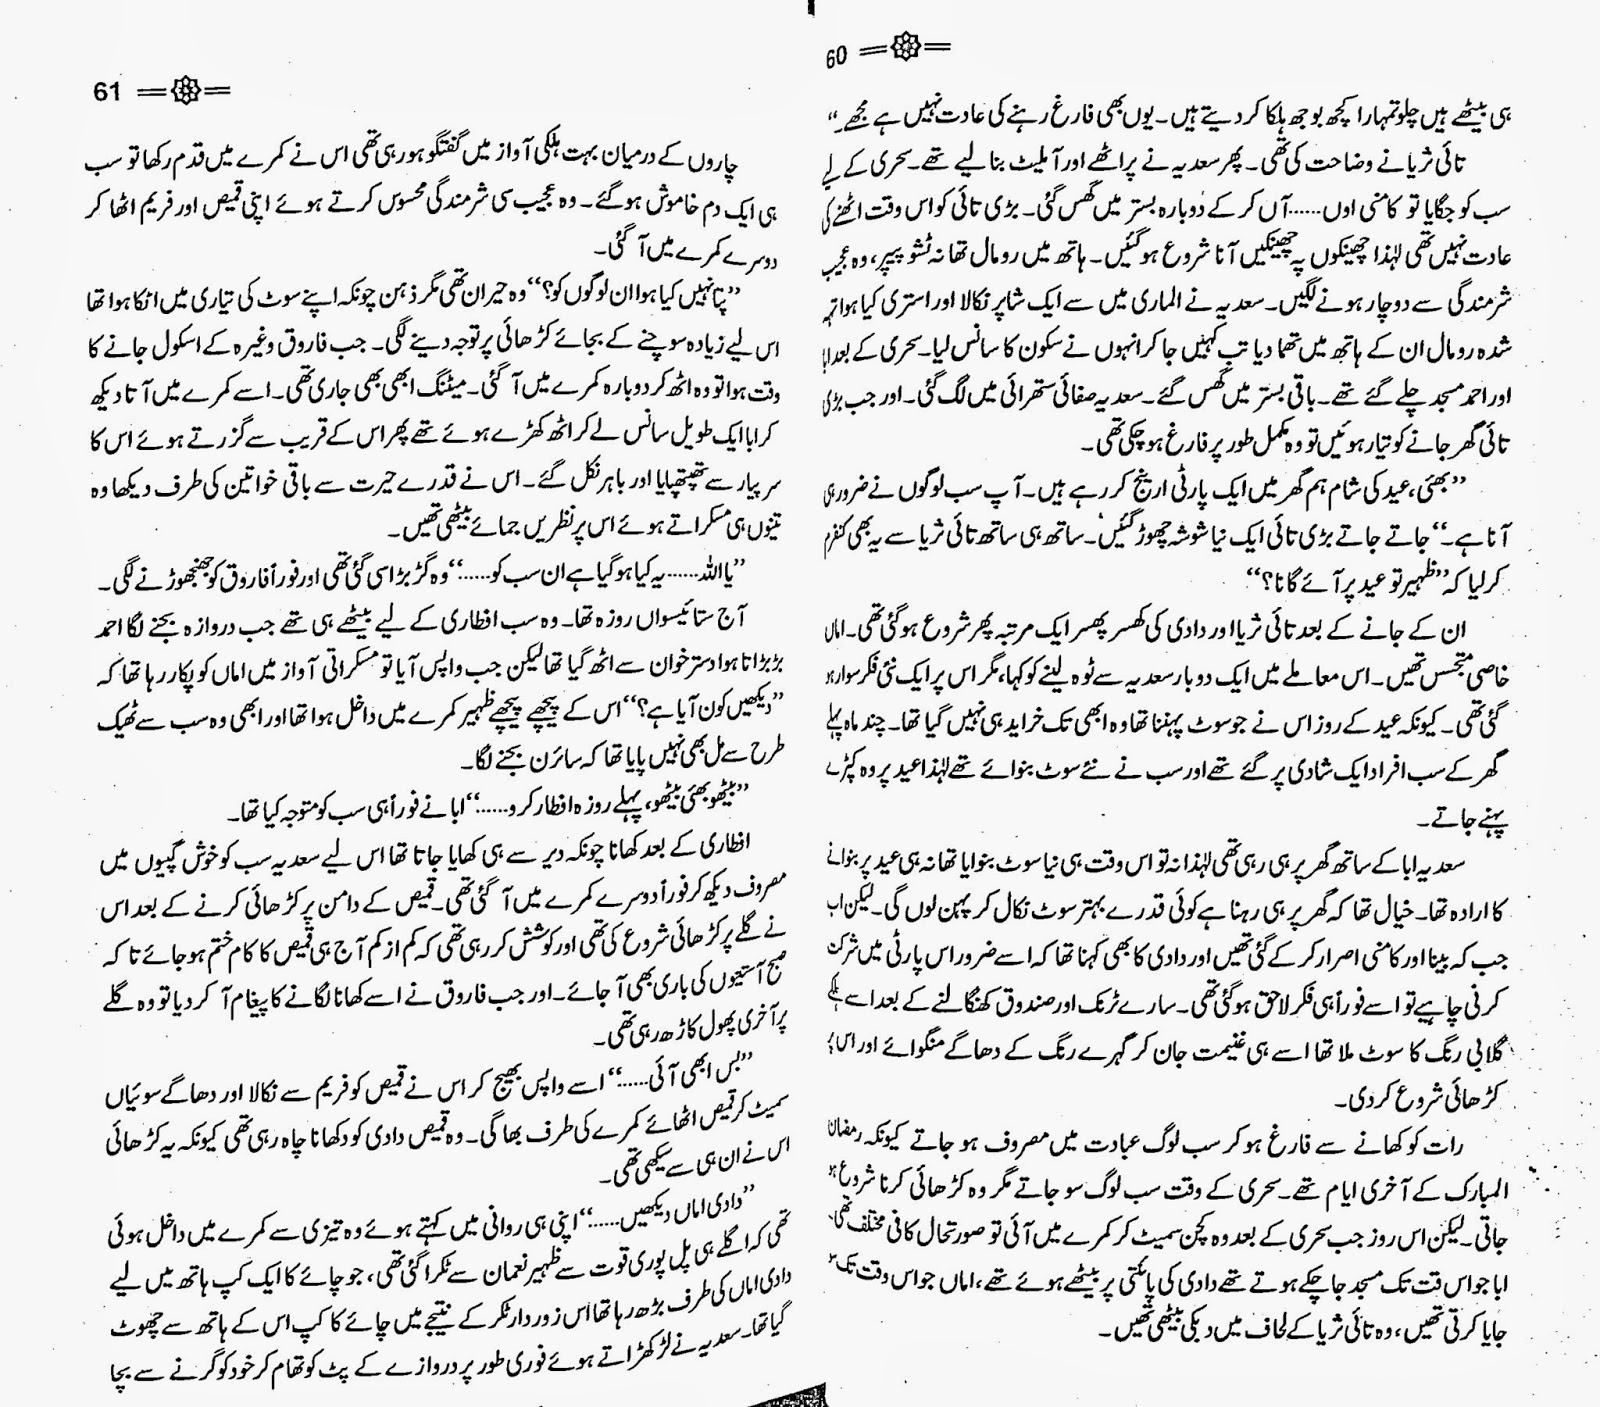 60
ہی بیٹھے ہیں چلو تمہارا کچھ بوجھ ہلکا کر دیتے ہیں۔ یوں بھی فارغ رہنے کی عادت نہیں ہے مجھے۔“
تائی ثریا نے وضاحت کی تھی۔ پھر سعدیہ نے پراٹھے اور آملیٹ بنا لیے تھے۔ سحری کے لیے
سب کو جگایا تو کامنی اوں......آں کر کے دوبارہ بستر میں گھس گئی۔ بڑی تائی کو اس وقت اٹھنے کی
عادت نہیں تھی لہٰذا چھینکوں پہ چھینکیں آنا شروع ہو گئیں۔ ہاتھ میں رومال تھا نہ ٹشو پیپر، وہ عجیب
شرمندگی سے دوچار ہونے لگیں۔ سعدیہ نے الماری میں سے ایک شاپر نکالا اور استری کیا ہوا تہہ
شدہ رومال ان کے ہاتھ میں تھما دیا تب کہیں جا کر انہوں نے سکون کا سانس لیا۔ سحری کے بعد ابا
اور احمد مسجد چلے گئے تھے۔ باقی بستر میں گھس گئے۔ سعدیہ صفائی ستھرائی میں لگ گئی۔ اور جب بڑی
تائی گھر جانے کو تیار ہوئیں تو وہ مکمل طور پر فارغ ہو چکی تھی۔
”بھئی، عید کی شام ہم گھر میں ایک پارٹی ارینج کر رہے ہیں۔ آپ سب لوگوں نے ضرور ہی
آنا ہے۔“ جاتے جاتے بڑی تائی ایک نیا شوشہ چھوڑ گئیں۔ ساتھ ہی ساتھ تائی ثریا سے یہ بھی کنفرم
کر لیا کہ ”ظہیر تو عید پر آئے گا نا؟“
ان کے جانے کے بعد تائی ثریا اور دادی کی کھسر پھسر ایک مرتبہ پھر شروع ہو گئی تھی۔ اماں
خاصی متجسس تھیں۔ اس معاملے میں ایک دو بار سعدیہ سے ٹوہ لینے کو کہا، مگر اس پر ایک نئی فکر سوار ہو
گئی تھی۔ کیونکہ عید کے روز اس نے جو سوٹ پہننا تھا وہ ابھی تک خرید ہی نہیں گیا تھا۔ چند ماہ پہلے
گھر کے سب افراد ایک شادی پر گئے تھے اور سب نے نئے سوٹ بنوائے تھے لہٰذا عید پر وہ کپڑے
پہنے جاتے۔
سعدیہ ابا کے ساتھ گھر پر ہی رہی تھی لہٰذا نہ تو اس وقت ہی نیا سوٹ بنوایا تھا نہ ہی عید پر بنوانے
کا ارادہ تھا۔ خیال تھا کہ گھر پر ہی رہنا ہے کوئی قدرے بہتر سوٹ نکال کر پہن لوں گی۔ لیکن اب
جب کہ بینا اور کامنی اصرار کر کے گئی تھیں اور دادی کا بھی کہنا تھا کہ اسے ضرور اس پارٹی میں شرکت
کرنی چاہیے تو اسے فوراً ہی فکر لاحق ہو گئی تھی۔ سارے ٹرنک اور صندوق کھنگالنے کے بعد اسے ہلکے
گلابی رنگ کا سوٹ ملا تھا اسے ہی غنیمت جان کر گہرے رنگ کے دھاگے منگوائے اور اس پر
کڑھائی شروع کر دی۔
رات کو کھانے سے فارغ ہو کر سب لوگ عبادت میں مصروف ہو جاتے کیونکہ رمضان
المبارک کے آخری ایام تھے۔ سحری کے وقت سب لوگ سو جاتے مگر وہ کڑھائی کرنا شروع ہو
جاتی۔ لیکن اس روز جب سحری کے بعد وہ کچن سمیٹ کر کمرے میں آئی تو صورتحال کافی مختلف تھی۔
ابا جو اس وقت تک مسجد جا چکے ہوتے تھے دادی کی پائنتی پر بیٹھے ہوئے تھے، اماں جو اس وقت تک
جایا کرتی تھیں، وہ تائی ثریا کے لحاف میں دبکی بیٹھی تھیں۔
61
چاروں کے درمیان بہت ہلکی آواز میں گفتگو ہو رہی تھی اس نے کمرے میں قدم رکھا تو سب
ہی ایک دم خاموش ہو گئے۔ وہ عجیب سی شرمندگی محسوس کرتے ہوئے اپنی قمیص اور فریم اٹھا کر
دوسرے کمرے میں آ گئی۔
”پتا نہیں کیا ہوا ان لوگوں کو؟“ وہ حیران تھی مگر ذہن چونکہ اپنے سوٹ کی تیاری میں اٹکا ہوا تھا
اس لیے زیادہ سوچنے کے بجائے کڑھائی پر توجہ دینے لگی۔ جب فاروق وغیرہ کے اسکول جانے کا
وقت ہوا تو وہ اٹھ کر دوبارہ کمرے میں آ گئی۔ میٹنگ ابھی بھی جاری تھی۔ اسے کمرے میں آتا دیکھ
کر ابا ایک طویل سانس لے کر اٹھ کھڑے ہوئے تھے پھر اس کے قریب سے گزرتے ہوئے اس کا
سر پیار سے تھپتھپایا اور باہر نکل گئے۔ اس نے قدرے حیرت سے باقی خواتین کی طرف دیکھا وہ
تینوں ہی مسکراتے ہوئے اس پر نظریں جمائے بیٹھی تھیں۔
”یا اللہ......یہ کیا ہو گیا ہے ان سب کو......“ وہ گڑبڑا سی گئی تھی اور فوراً فاروق کو جھنجھوڑنے لگی۔
آج ستائیسواں روزہ تھا۔ وہ سب افطاری کے لیے بیٹھے ہی تھے جب دروازہ بجنے لگا احمد
بڑبڑاتا ہوا دسترخوان سے اٹھ گیا تھا لیکن جب واپس آیا تو مسکراتی آواز میں اماں کو پکار رہا تھا کہ
”دیکھیں کون آیا ہے؟“ اس کے پیچھے پیچھے ظہیر کمرے میں داخل ہوا تھا اور ابھی وہ سب سے ٹھیک
طرح سے مل بھی نہیں پایا تھا کہ سائرن بجنے لگا۔
”بیٹھو بھئی بیٹھو، پہلے روزہ افطار کرو......“ ابا نے فوراً ہی سب کو متوجہ کیا تھا۔
افطاری کے بعد کھانا چونکہ دیر سے ہی کھایا جاتا تھا اس لیے سعدیہ سب کو خوش گپیوں میں
مصروف دیکھ کر فوراً دوسرے کمرے میں آ گئی تھی۔ قمیص کے دامن پر کڑھائی کرنے کے بعد اس
نے گلے پر کڑھائی شروع کی تھی اور کوشش کر رہی تھی کہ کم از کم آج ہی قمیص کا کام ختم ہو جائے تا کہ
صبح آستینوں کی باری بھی آ جائے۔ اور جب فاروق نے اسے کھانا لگانے کا پیغام آ کر دیا تو وہ گلے
پر آخری پھول کاڑھ رہی تھی۔
”بس ابھی آئی......“ اسے واپس بھیج کر اس نے قمیص کو فریم سے نکالا اور دھاگے سوئیاں
سمیٹ کر قمیص اٹھائے کمرے کی طرف بھاگی۔ وہ قمیص دادی کو دکھانا چاہ رہی تھی کیونکہ یہ کڑھائی
اس نے ان ہی سے سیکھی تھی۔
”دادی اماں دیکھیں......“ اپنی ہی روانی میں کہتے ہوئے وہ تیزی سے کمرے میں داخل ہوئی
تھی کہ اگلے ہی پل پوری قوت سے ظہیر نعمان سے ٹکرا گئی تھی، جو چائے کا ایک کپ ہاتھ میں لیے
دادی اماں کی طرف بڑھ رہا تھا اس زوردار ٹکر کے نتیجے میں چائے کا کپ اس کے ہاتھ سے چھوٹ
گیا تھا۔ سعدیہ نے لڑکھڑاتے ہوئے فوری طور پر دروازے کے پٹ کو تھام کر خود کو گرنے سے بچا